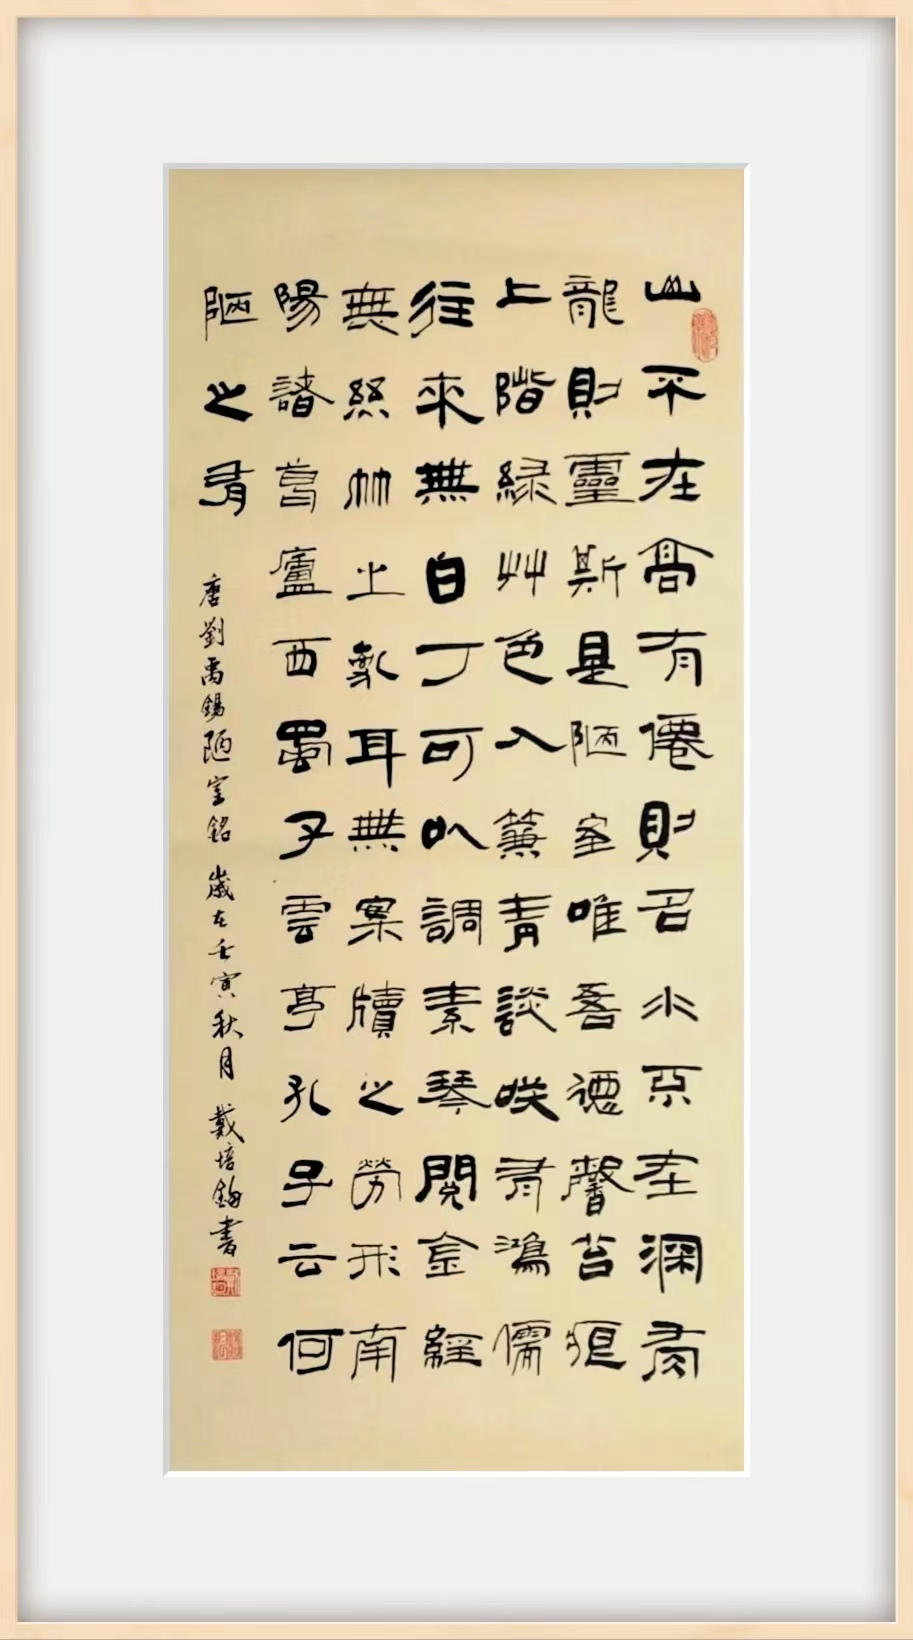 山不在高有僊則名水不在深有
龍則靈斯是陋室唯吾德馨苔痕
上階緑艸色入簾青談咲有鴻儒
往來無白丁可以調素琴閲金經
無絲竹之亂耳無案牘之勞形南
陽諸葛廬西蜀子雲亭孔子云何
陋之有
唐劉禹錫陋室銘 歲在壬寅秋月 戴培鈞書